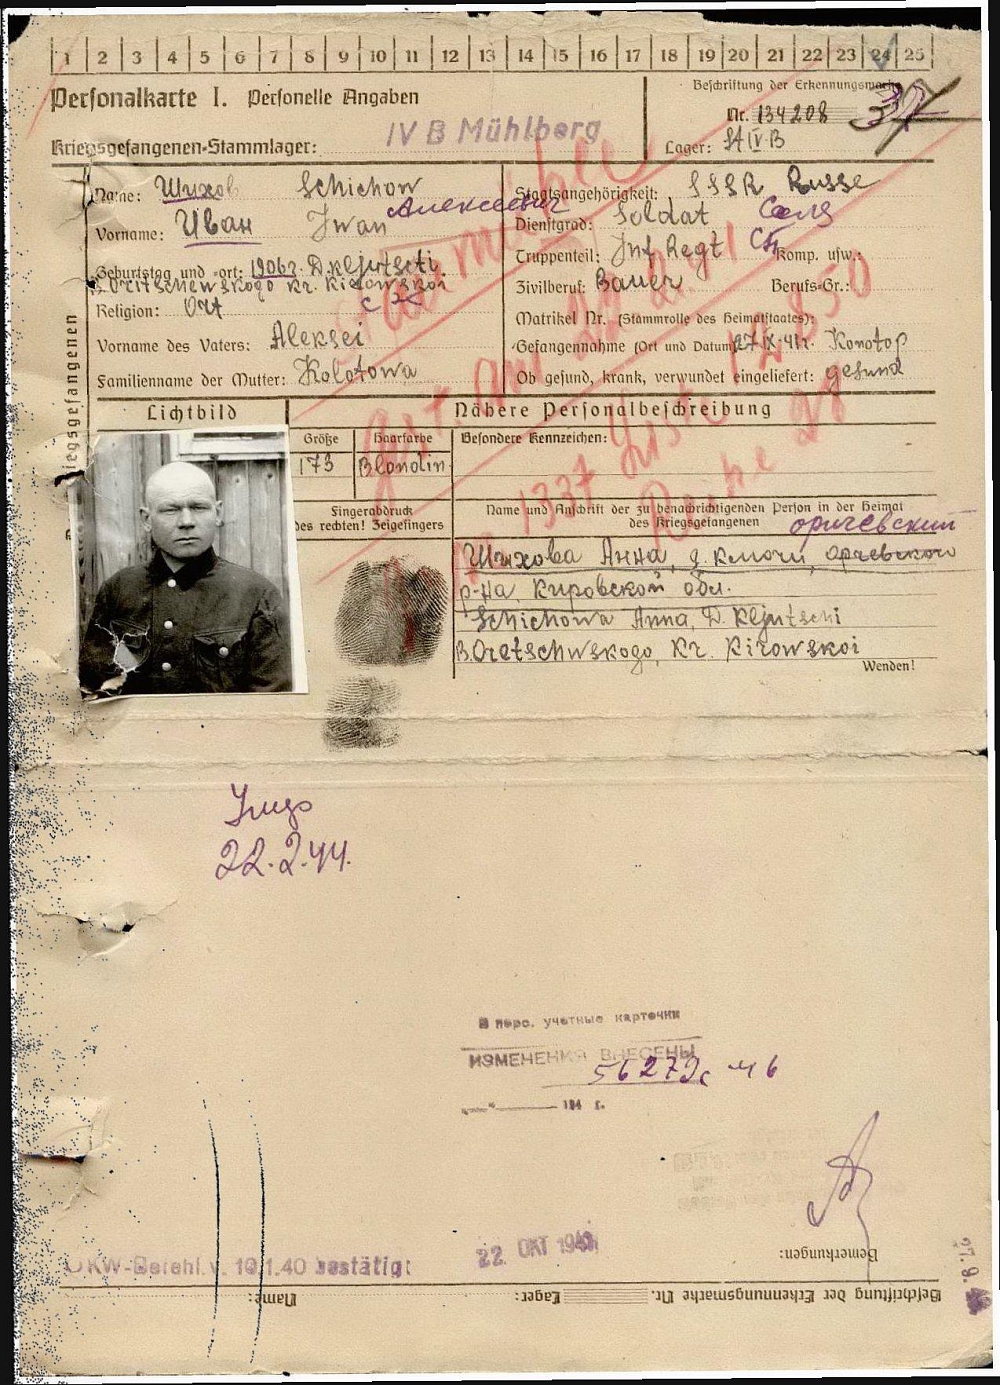 1 2 3 4 5 6 7 8 9 10 11 12 13 14 15 16 17 18 19 20 21 22 23 24 25
Personalkarte I. Personelle Angaben
Beschriftung der Erkennungsmarke
Nr. 134208
Kriegsgefangenen-Stammlager: IV B Mühlberg
Lager: St IV B
Name: Шихов Schichow
Staatsangehörigkeit: SSSR Russe
Vorname: Иван Iwan Алексеевич
Dienstgrad: Soldat
Truppenteil: Inf Regt Komp. usw.:
Geburtstag und -ort: 1906г. D. Kljutschi
Zivilberuf: Bauer Berufs-Gr.:
Religion: Ort
Matrikel Nr. (Stammrolle des Heimatstaates):
Vorname des Vaters: Aleksei
Gefangennahme (Ort und Datum): 27.IX.41г. Konotop
Familienname der Mutter: Kolotowa
Ob gesund, krank, verwundet eingeliefert: gesund
iegsgefangenen
Lichtbild
Nähere Personalbeschreibung
Größe Haarfarbe Besondere Kennzeichen:
173 Blondin
Fingerabdruck
des rechten! Zeigefingers
Name und Anschrift der zu benachrichtigenden Person in der Heimat
des Kriegsgefangenen
оричевский
Шихова Анна, д Ключи, орчевского
р-на Кировской обл.
Schichowa Anna, D. Kljutschi
B. Oretschwskogo, Kr. Kirowskoi
Wenden!
1337 Liste 12850
Reihe 28
22.2.44.
В перс. учетные карточки
ИЗМЕНЕНИЯ ВНЕСЕНЫ
56279с 46
"___"______ 194 г.
22 ОКТ 194
Bemerkungen:
OKW-Befehl v. 10.1.40 bestätigt
Beschriftung der Erkennungsmarke Nr. Lager: Name: